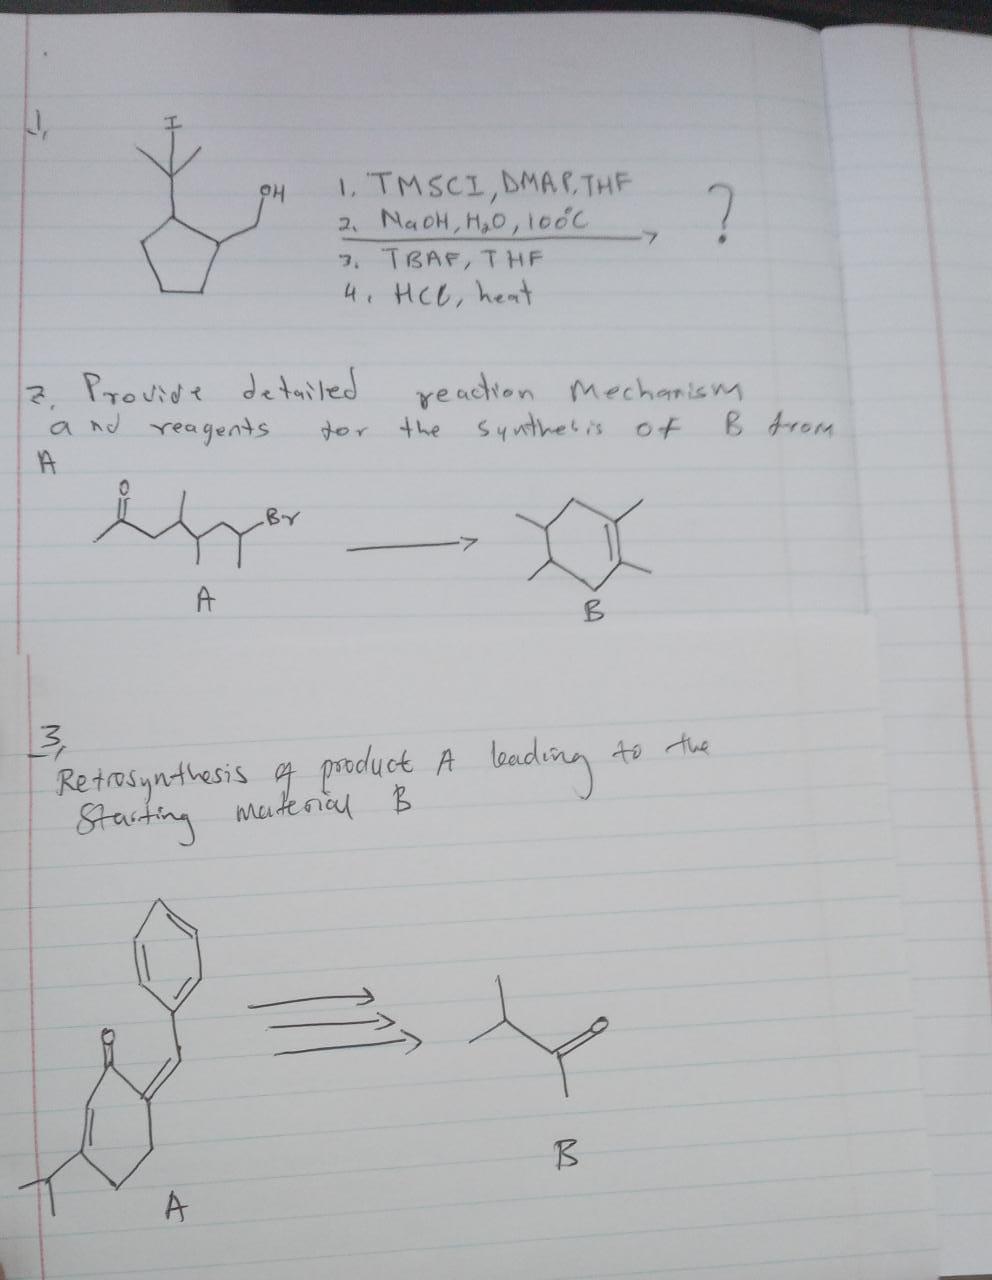 1,
I
OH
1. TMSCI, DMAP, THF
2. NaOH, H₂O, 100°C
3. TBAF, THF
4. HCl, heat
?
2, Provide detailed reaction Mechanism
and reagents for the synthesis of B from
A
O
Br
A
B
3,
Retrosynthesis of product A leading to the
Starting material B
O
O
A
B